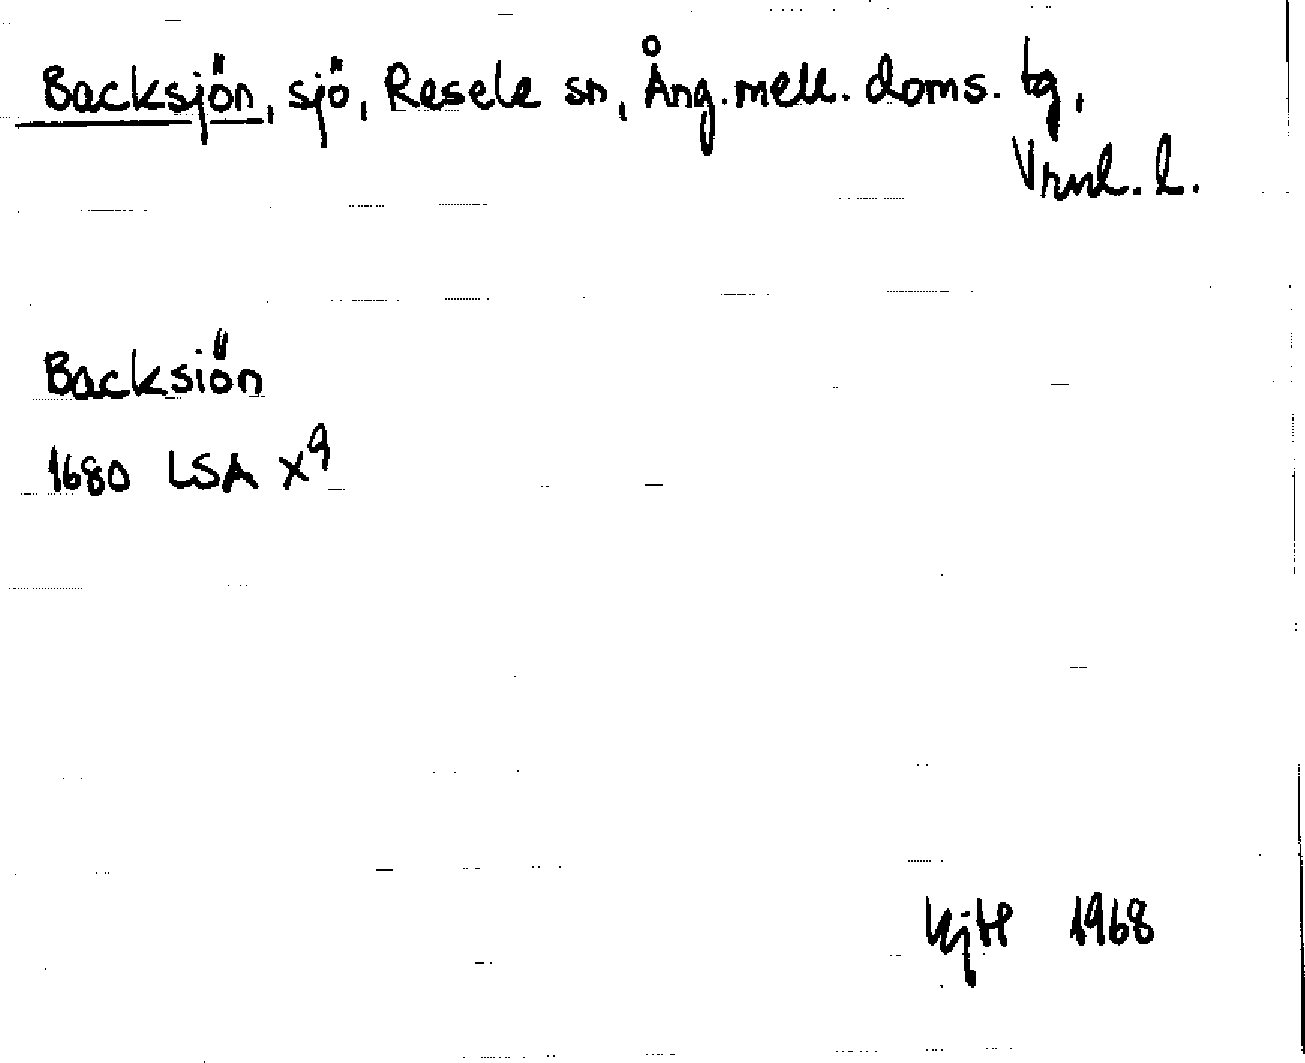 Backsjön, sjö, Resele sn, Ång. mell. doms. tg,
Vrnl. l.
Backsiön
1680 LSA X9
1968